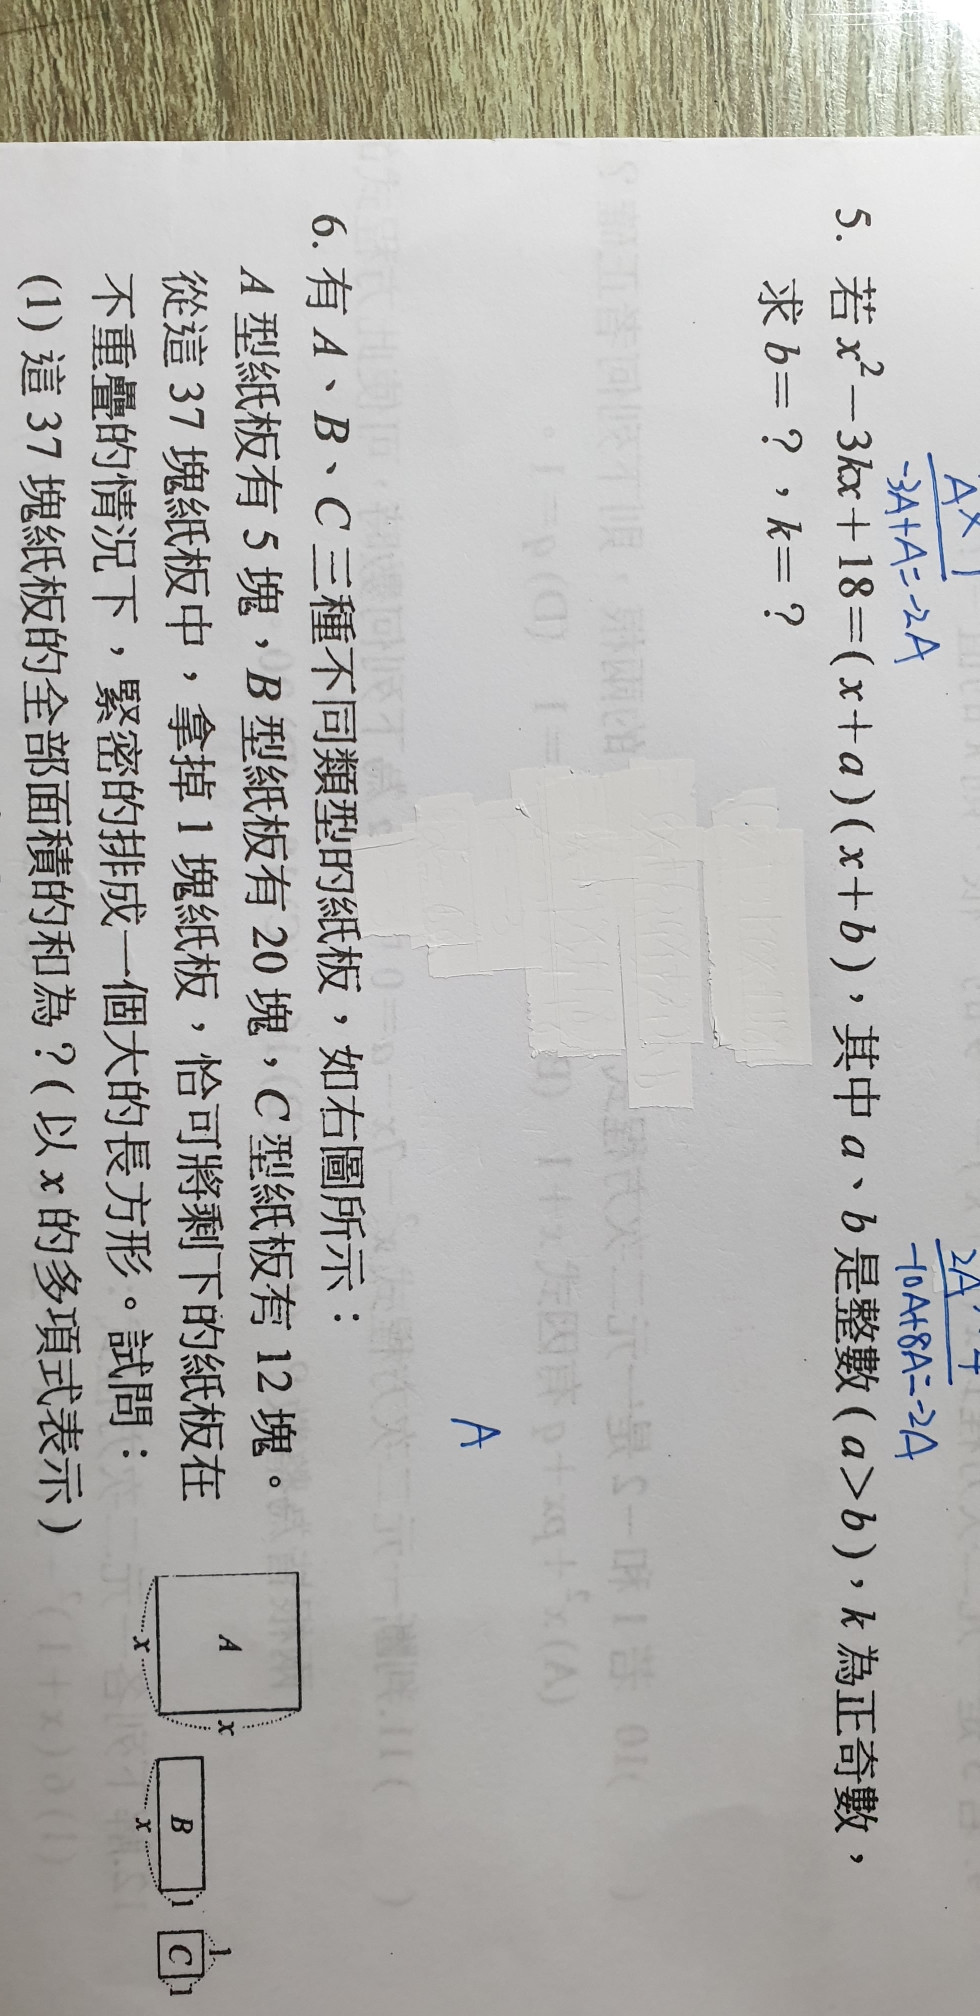 -3A+A=-2A
-10A+8A=-2A
5. 若 x²－3kx＋18＝(x＋a)(x＋b)，其中 a、b 是整數(a＞b)，k 為正奇數，
求 b＝？，k＝？
A
6. 有 A、B、C 三種不同類型的紙板，如右圖所示：
A 型紙板有 5 塊，B 型紙板有 20 塊，C 型紙板有 12 塊。
從這 37 塊紙板中，拿掉 1 塊紙板，恰可將剩下的紙板在
不重疊的情況下，緊密的排成一個大的長方形。試問：
(1) 這 37 塊紙板的全部面積的和為？(以 x 的多項式表示)
A
x
x
B
x
1
C
1
1